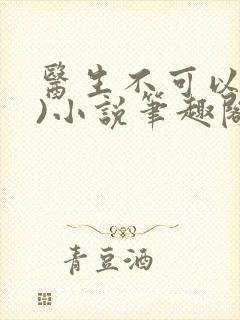 醫生不可以
)小說筆趣閣
青豆酒